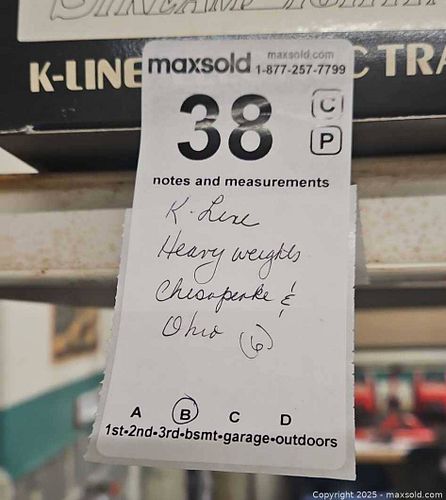 STREAM
K-LINE
C TRA
maxsold maxsold.com
1-877-257-7799
38 C
P
notes and measurements
K-Line
Heavy weights
Chesapeake &
Ohio (6)
A B C D
1st•2nd•3rd•bsmt•garage•outdoors
Copyright 2025 - maxsold.com